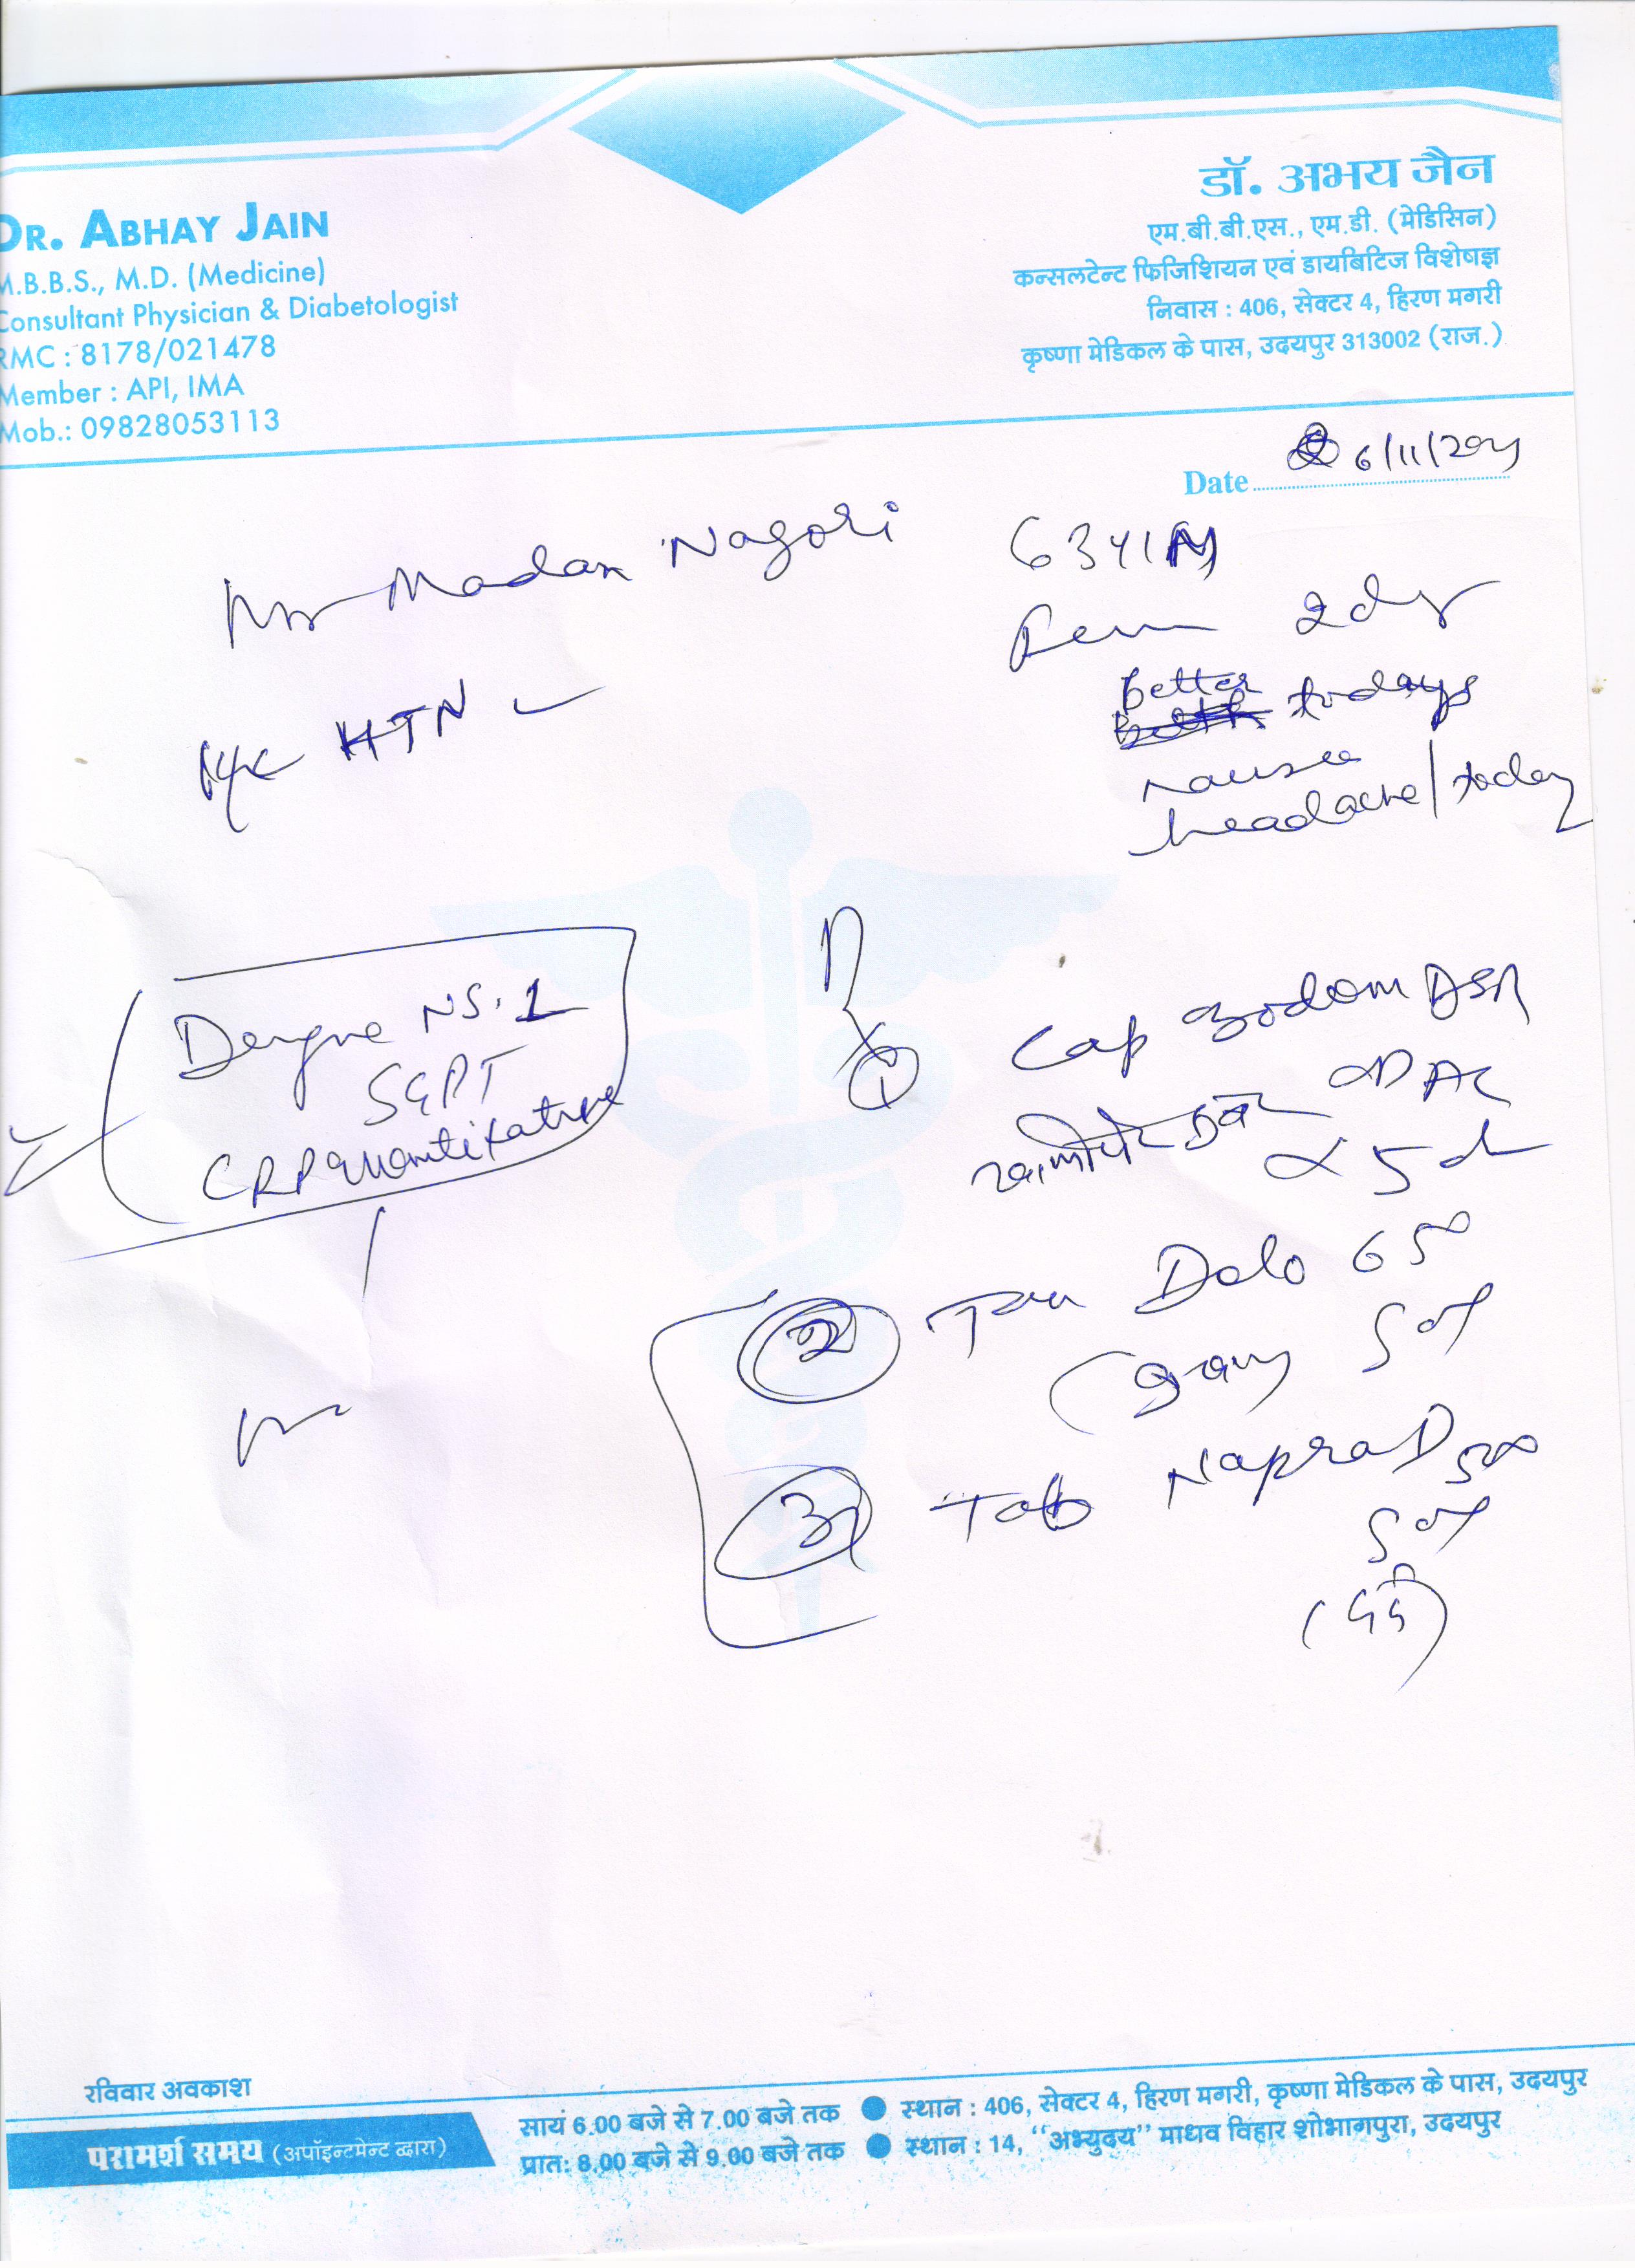 DR. ABHAY JAIN
M.B.B.S., M.D. (Medicine)
Consultant Physician & Diabetologist
RMC : 8178/021478
Member : API, IMA
Mob.: 09828053113
डॉ. अभय जैन
एम.बी.बी.एस., एम.डी. (मेडिसिन)
कन्सलटेन्ट फिजिशियन एवं डायबिटिज विशेषज्ञ
निवास : 406, सेक्टर 4, हिरण मगरी
कृष्णा मेडिकल के पास, उदयपुर 313002 (राज.)
Date 6/11/2021
Mr Madan Nagori
63y/M
2d
better todays
nausea
headache/today
K/c HTN
Dengue NS.1
SGPT
CRP quantitative
Rx
1 Cap Zodom DSR
OD AC
खाली पेट
x 5d
2 Tab Dolo 650
SOS
3 Tab Napra D 500
SOS
(दर्द)
रविवार अवकाश
परामर्श समय (अपॉइन्टमेन्ट द्वारा)
सायं 6.00 बजे से 7.00 बजे तक ● स्थान : 406, सेक्टर 4, हिरण मगरी, कृष्णा मेडिकल के पास, उदयपुर
प्रातः 8.00 बजे से 9.00 बजे तक ● स्थान : 14, ‘‘अभ्युदय’’ माधव विहार शोभागपुरा, उदयपुर